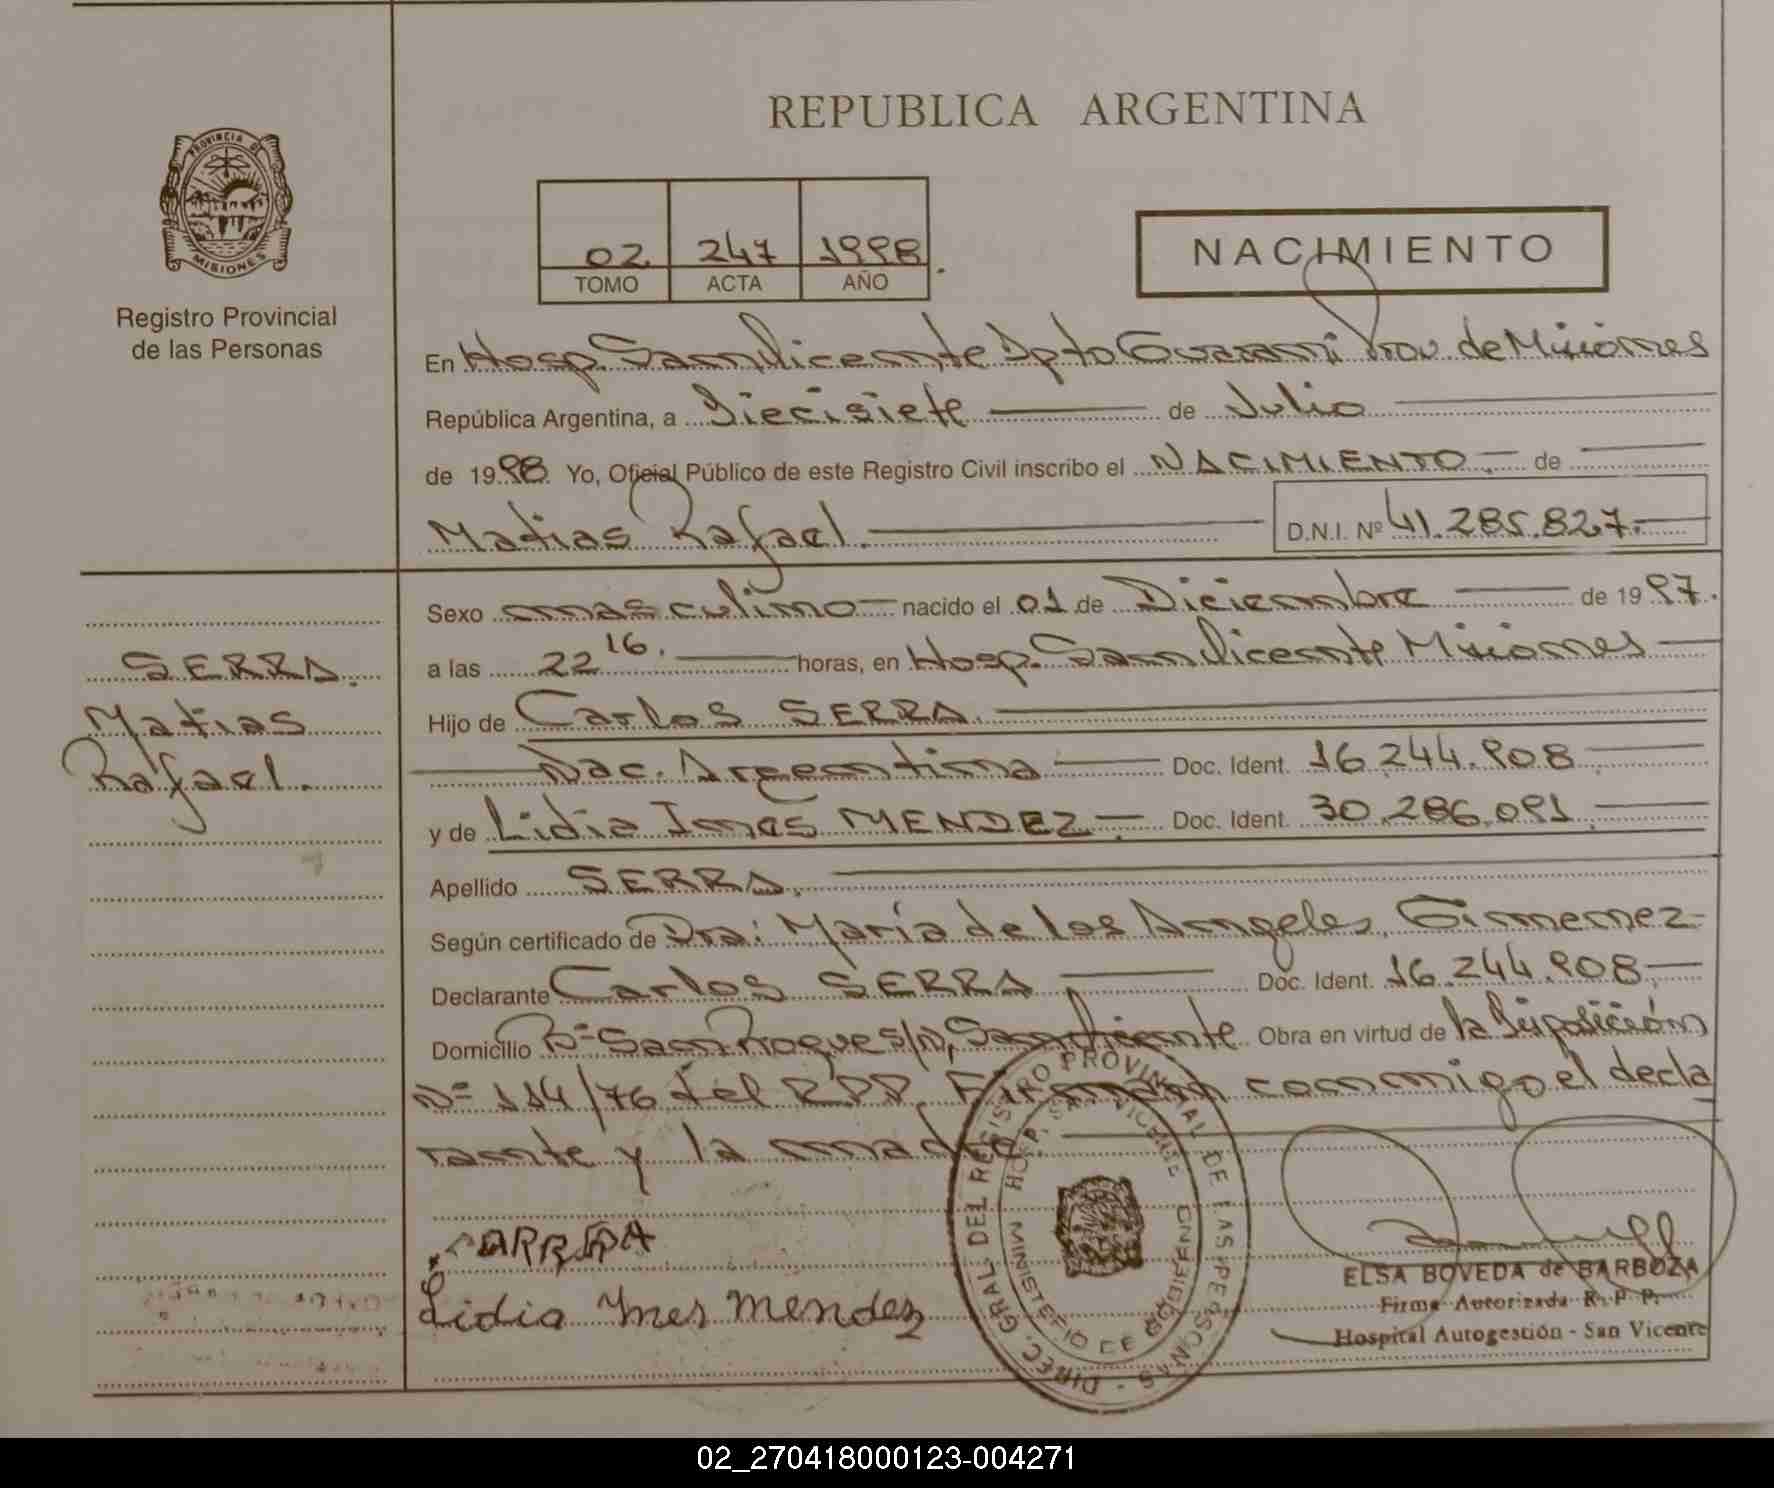 REPUBLICA ARGENTINA
PROVINCIA DE
MISIONES
Registro Provincial
de las Personas
02 247 1998
TOMO ACTA AÑO
NACIMIENTO
En Hosp. San Vicente Dpto Guarani Prov. de Misiones
República Argentina, a Diecisiete de Julio
de 1998. Yo, Oficial Público de este Registro Civil inscribo el NACIMIENTO.- de
Matias Rafael. D.N.I. Nº 41.285.827.-
Sexo masculino nacido el 01 de Diciembre de 1997.
a las 22 16. horas, en Hosp. San Vicente Misiones
Hijo de Carlos SERRA.
Nac. Argentina Doc. Ident. 16.244.908
y de Lidia Ines MENDEZ.- Doc. Ident. 30.286.091.
Apellido SERRA.
Según certificado de Dra: María de los Angeles Gimenez
Declarante Carlos SERRA Doc. Ident. 16.244.908
Domicilio Bº San Roque s/n, San Vicente Obra en virtud de la Disposición
Nº 114/76 del RPP. Firman conmigo el decla
rante y la madre.
SERRA.
Matias
Rafael.
Lidia Ines Mendez
DIREC. GRAL. DEL REGISTRO PROVINCIAL DE LAS PERSONAS
HOSP. SAN VICENTE
MINISTERIO DE GOBIERNO
ELSA BOVEDA de BARBOZA
Firma Autorizada R. P. P.
Hospital Autogestión - San Vicente
02_270418000123-004271